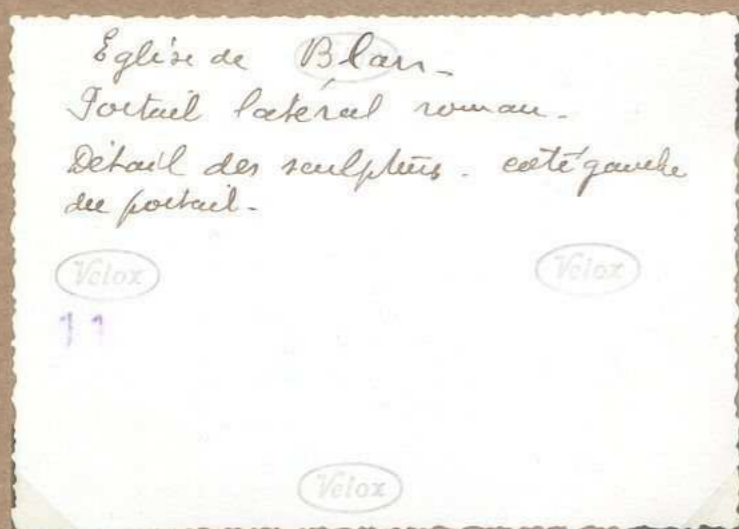 Eglise de Blan_
Portail latéral roman_
Détail des sculptures. coté gauche
du portail_
Velox
Velox
11
Velox